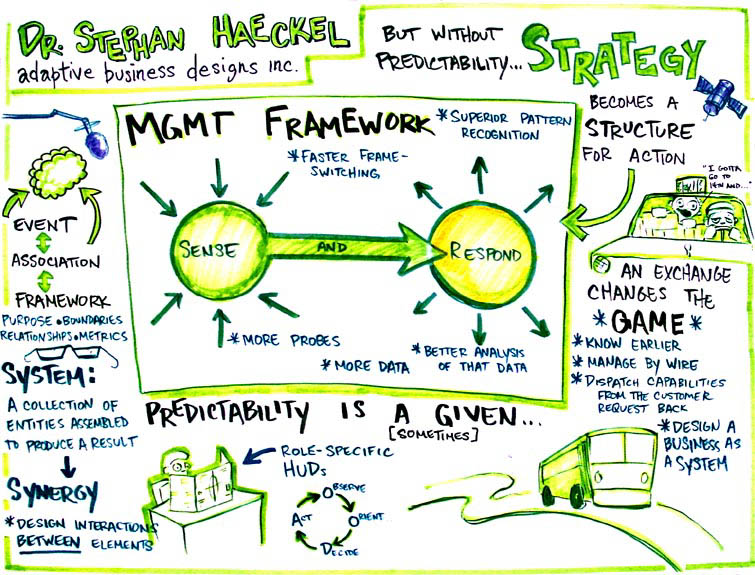 DR. STEPHAN HAECKEL
adaptive business designs inc.
BUT WITHOUT
PREDICTABILITY... STRATEGY
BECOMES A
STRUCTURE
FOR ACTION
"I GOTTA
GO TO
14TH AND..."
MGMT FRAMEWORK
*SUPERIOR PATTERN
RECOGNITION
*FASTER FRAME-
SWITCHING
SENSE
AND
RESPOND
*MORE PROBES
*MORE DATA
*BETTER ANALYSIS
OF THAT DATA
EVENT
ASSOCIATION
FRAMEWORK
PURPOSE • BOUNDARIES
RELATIONSHIPS • METRICS
SYSTEM:
A COLLECTION OF
ENTITIES ASSEMBLED
TO PRODUCE A RESULT
SYNERGY
*DESIGN INTERACTIONS
BETWEEN ELEMENTS
PREDICTABILITY IS A GIVEN...
[SOMETIMES]
ROLE-SPECIFIC
HUDS
OBSERVE
ORIENT
DECIDE
ACT
AN EXCHANGE
CHANGES THE
*GAME*
*KNOW EARLIER
*MANAGE BY WIRE
*DISPATCH CAPABILITIES
FROM THE CUSTOMER
REQUEST BACK
*DESIGN A
BUSINESS AS
A SYSTEM